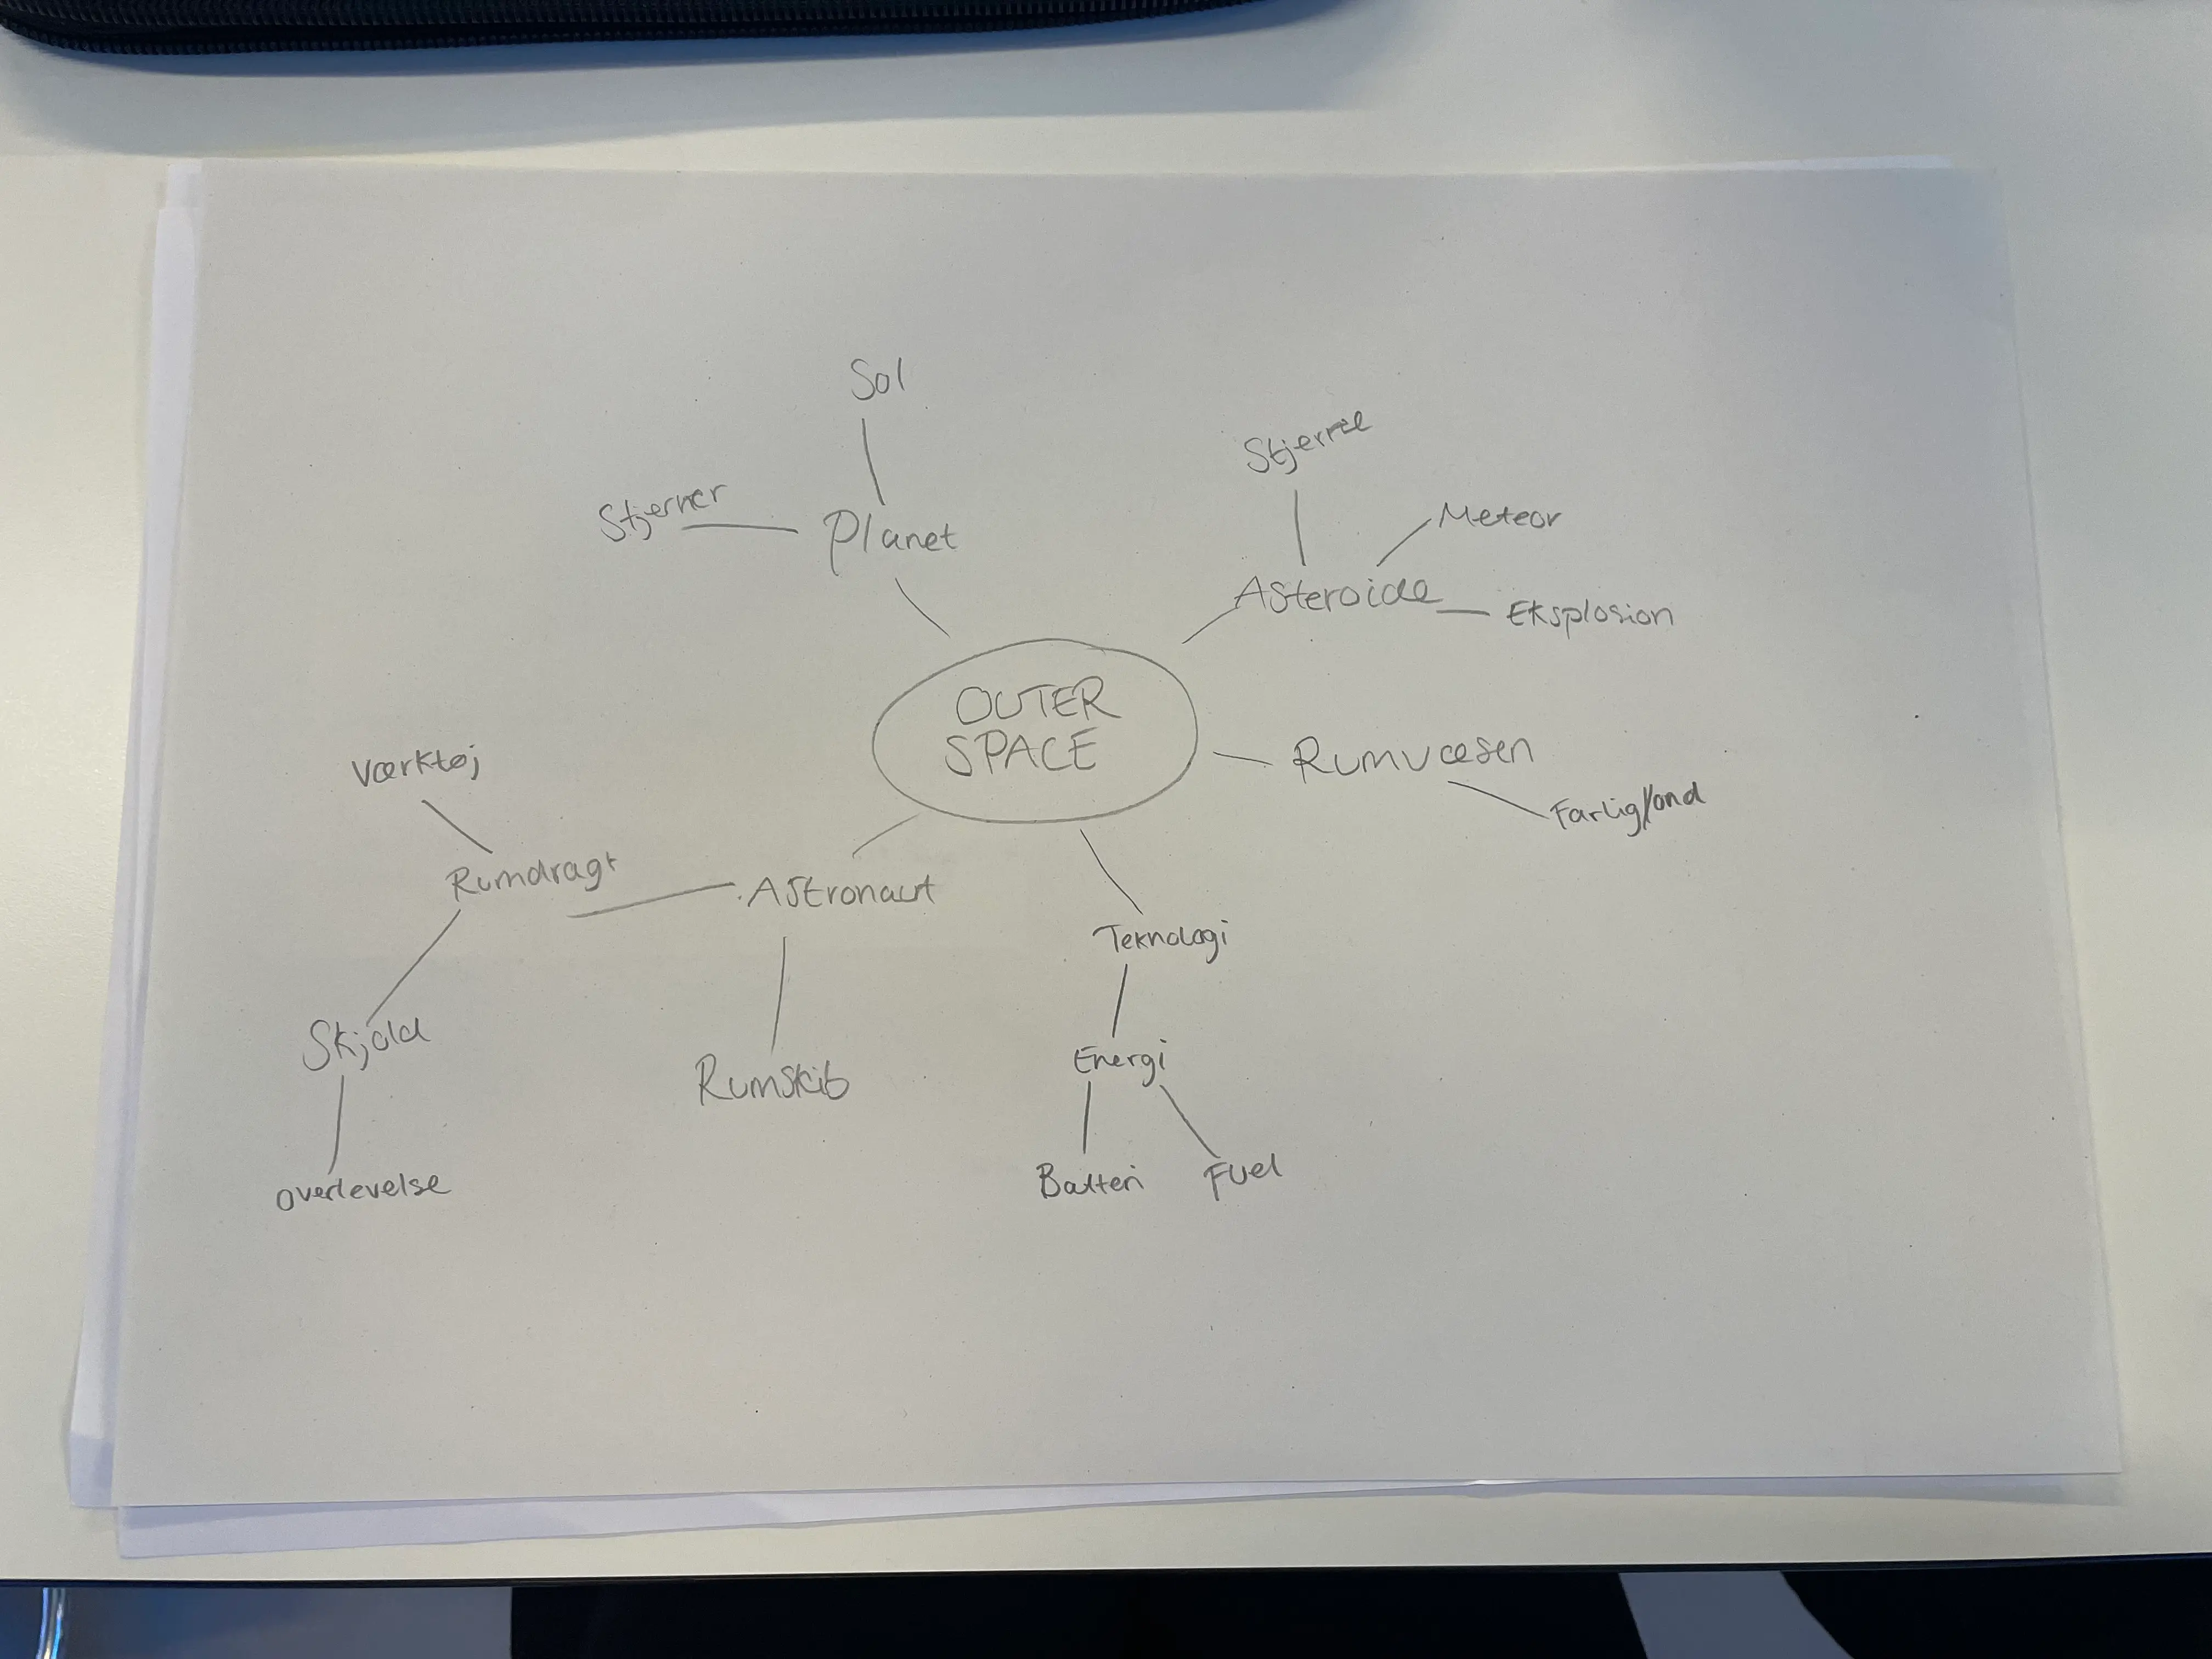 Sol
Stjerne
Stjerner
Planet
Meteor
Asteroide
Eksplosion
OUTER
SPACE
Rumvæsen
Farlig/ond
Værktøj
Rumdragt
Astronaut
Teknologi
Skjold
Rumskib
Energi
Overlevelse
Batteri
Fuel